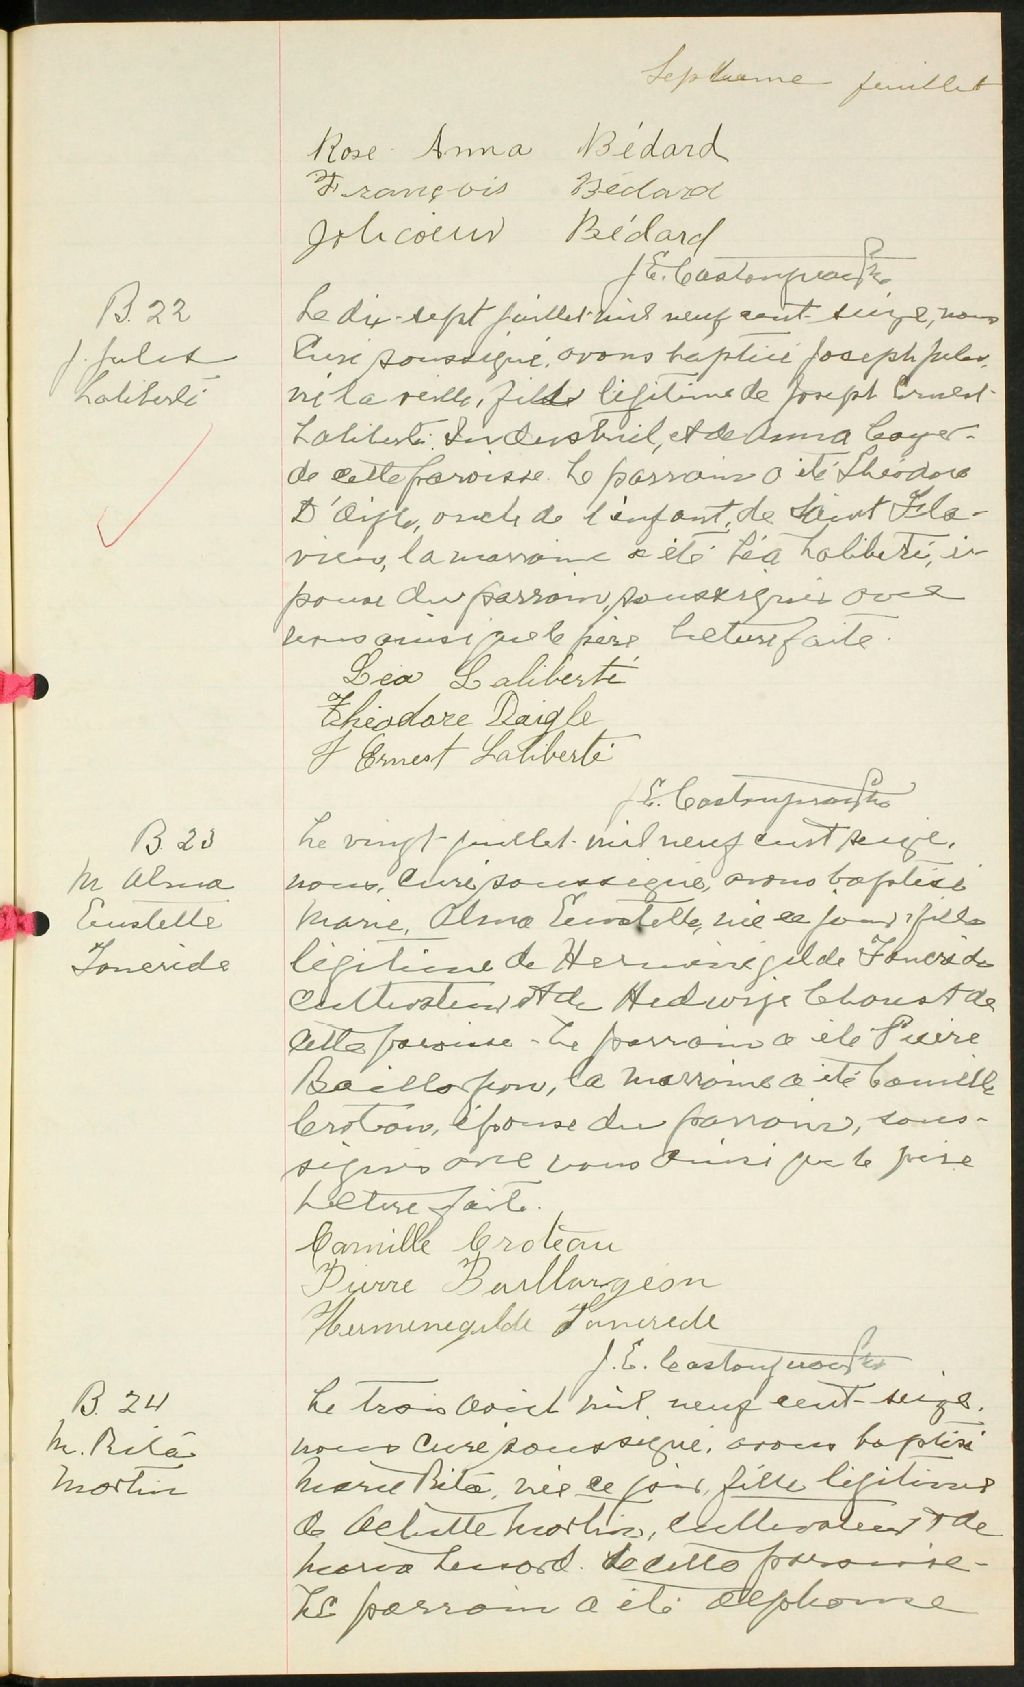 Septième feuillet
Rose Anna Bédard
François Bédard
Jolicoeur Bédard
J. E. Castonguay Ptre
B. 22
J. Jules
Laliberté
Le dix-sept juillet mil neuf cent seize, nous
Curé soussigné, avons baptisé Joseph Jules,
né la veille, fils légitime de Joseph Ernest
Laliberté Industriel, et de Anna Boyer
de cette paroisse. Le parrain a été Théodore
D'Aigle, oncle de l'enfant, de Saint Fla-
vien, la marraine a été Léa Laliberté, é-
pouse du parrain, soussignés avec
nous ainsi que le père. Lecture faite.
Léa Laliberté
Théodore Daigle
J Ernest Laliberté
J. E. Castonguay Ptre
B. 23
M Alma
Eustelle
Tancrède
Le vingt juillet mil neuf cent seize,
nous, curé soussigné, avons baptisé
Marie, Alma Eustelle, née ce jour, fille
légitime de Herménégilde Tancrède
cultivateur et de Hedwige Choust de
cette paroisse - Le parrain a été Pierre
Baillargeon, la marraine a été Camille
Croteau, épouse du parrain, sous-
signés avec nous ainsi que le père
Lecture faite.
Camille Croteau
Pierre Baillargeon
Hermenegilde Tancrede
J. E. Castonguay Ptre
B. 24
M. Rita
Martin
Le trois août mil neuf cent-seize,
nous curé soussigné, avons baptisé
Marie Rita, née ce jour, fille légitime
de Achille Martin, cultivateur et de
Maria de cette paroisse -
Le parrain a été Alphonse